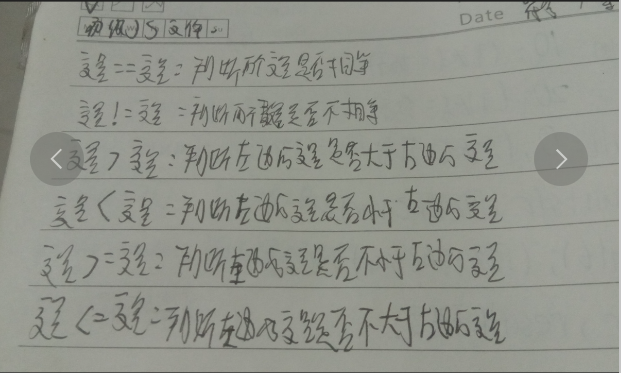 Date
变量==变量:判断两个变量是否相等
变量!=变量:判断两个变量是否不相等
变量>变量:判断左边的变量是否大于右边的变量
变量<变量:判断左边的变量是否小于右边的变量
变量>=变量:判断左边的变量是否不小于右边的变量
变量<=变量:判断左边的变量是否不大于右边的变量